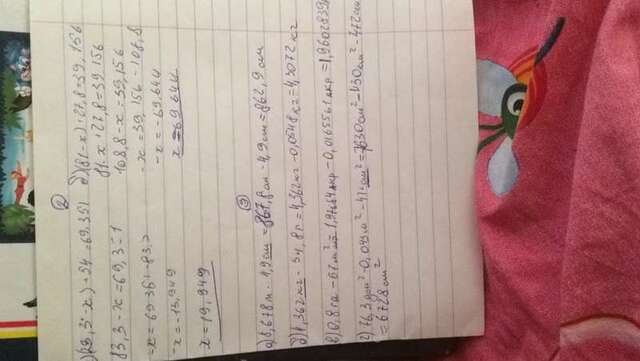 ②
а)(83,3-x)+54=69,351
83,3-x=69,351
-x=69,351-83,3
-x=-13,949
x=19,949
б)(81-x)+27,8=39,156
81-x+27,8=39,156
108,8-x=39,156
-x=39,156-108,8
-x=-69,644
x=69,644
③
а)8,678м-4,9см=867,8см-4,9см=862,9см
б)4,362кг-54,8г=4,362кг-0,0548кг=4,3072кг
в)0,8га-67м²=1,97684акр-0,0165561акр=1,9602839
г)76,3дм²-0,043м²-472см²=7630см²-430см²-472см
=6728см²